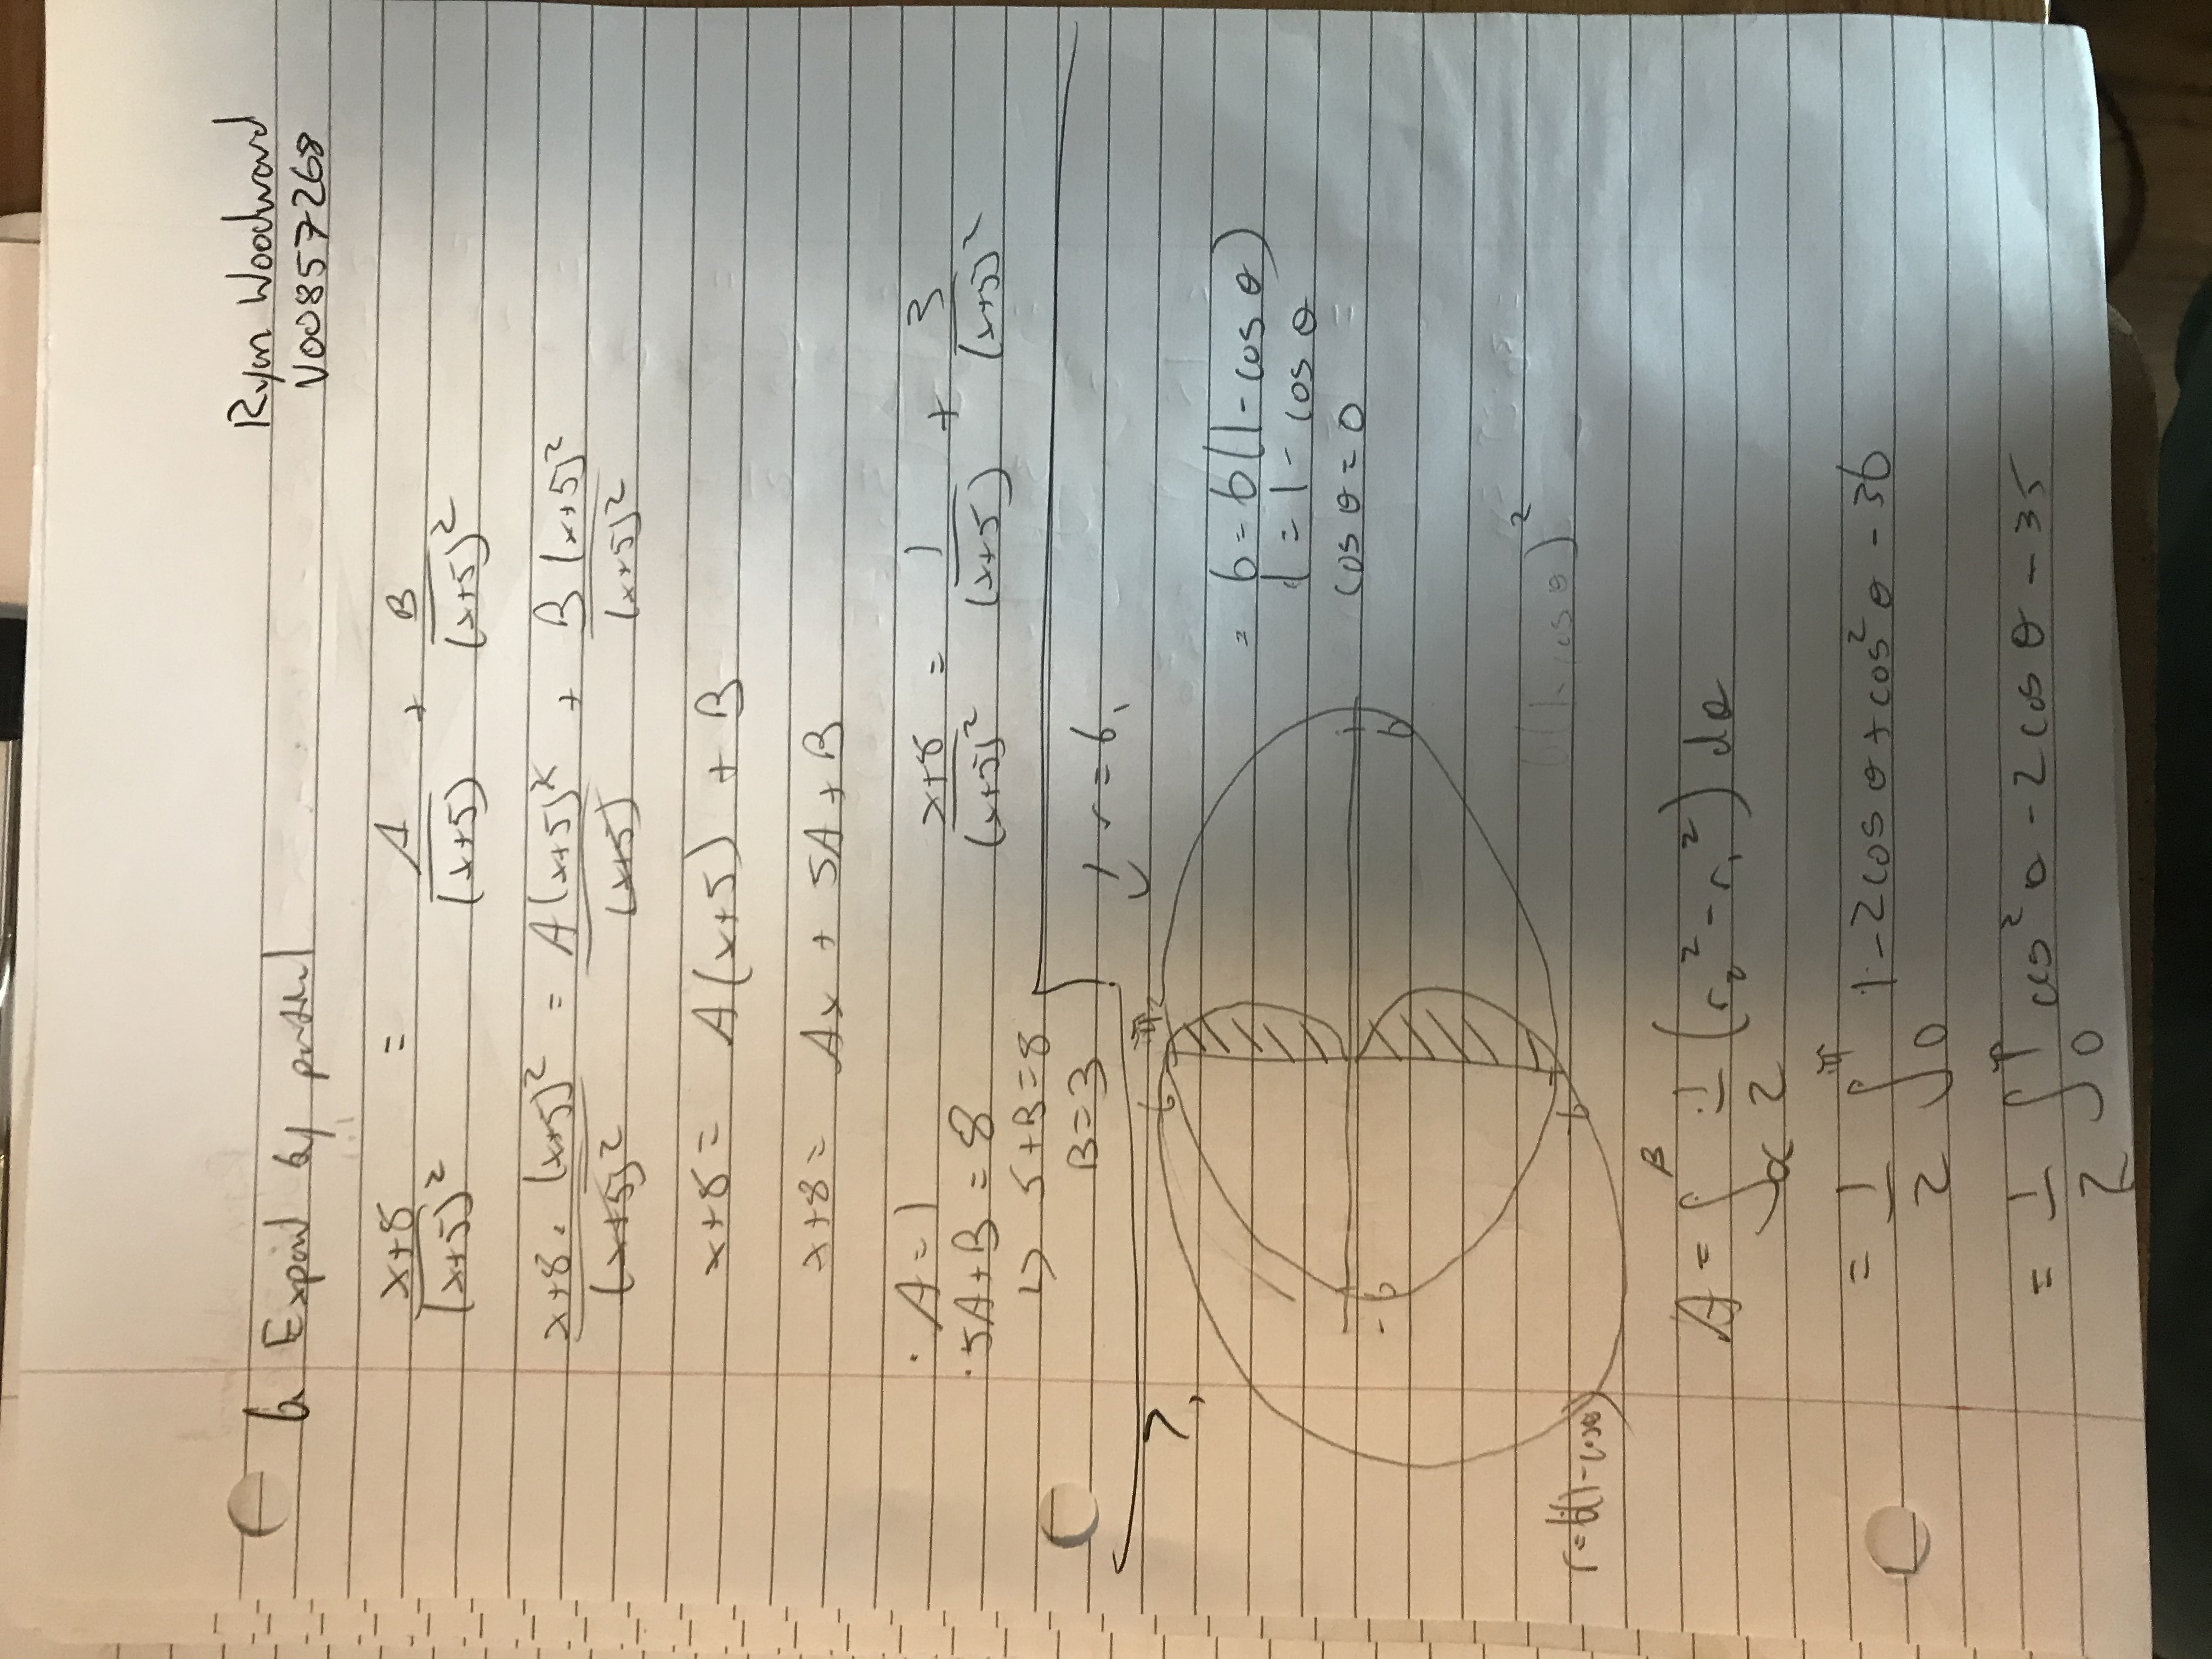 Ryan Woodward
V00857268
6. Expand by partial
x+8/(x+5)² = A/(x+5) + B/(x+5)²
x+8 · (x+5)²/(x+5)² = A(x+5)²/(x+5) + B(x+5)²/(x+5)²
x+8 = A(x+5) + B
x+8 = Ax + 5A + B
· A = 1
· 5A + B = 8
↳ 5 + B = 8
B = 3
x+8/(x+5)² = 1/(x+5) + 3/(x+5)²
7.
r = 6,
6 π/2
-6 6
-6
r = 6(1-cosθ)
= 6 = 6(1-cos θ)
1 = 1 - cos θ
cos θ = 0
6(1-cos θ)²
A = ∫α^β 1/2 (r₂² - r₁²) dθ
= 1/2 ∫0^π 1 - 2cos θ + cos² θ - 36
= 1/2 ∫0^π cos² θ - 2cos θ - 35